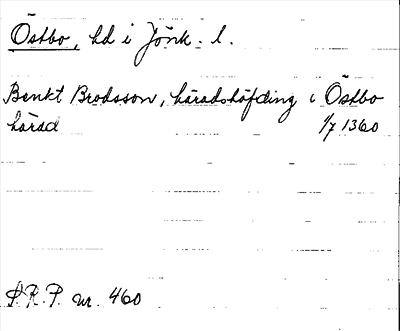 Östbo, hd i Jönk. l.
Benkt Brodsson, häradshöfding i Östbo
härad 1/7 1360
S.R.P. nr. 460